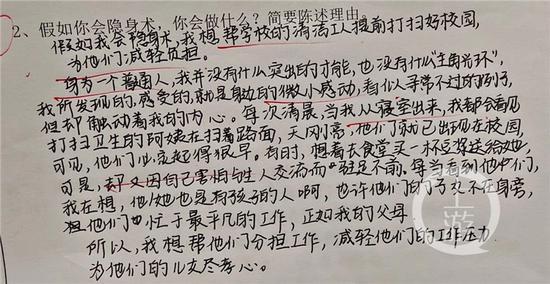 2、假如你会隐身术，你会做什么？简要陈述理由
假如我会隐身术，我想帮学校的清洁工人提前打扫好校园，
为他们减轻负担。
身为一个普通人，我并没有什么突出的才能，也没有什么“主角光环”，
我所发现的，感受的，就是身边的微小感动，看似寻常不过的例子，
但却触动着我的内心。每次清晨，当我从寝室出来，我都会看见
打扫卫生的阿姨在扫着路面，天刚亮，他们就已出现在校园，
可见，他们必定起得很早。有时，想着去食堂买一杯豆浆送给她，
可是，却又因自己害怕与生人交流而驻足不前。每当看到他们，
我在想，他/她也是有孩子的人啊，也许他们的子女不在身旁，
但他们也忙于最平凡的工作，正如我的父母
所以，我想帮他们分担工作，减轻他们的工作压力
为他们的儿女尽孝心。
上游